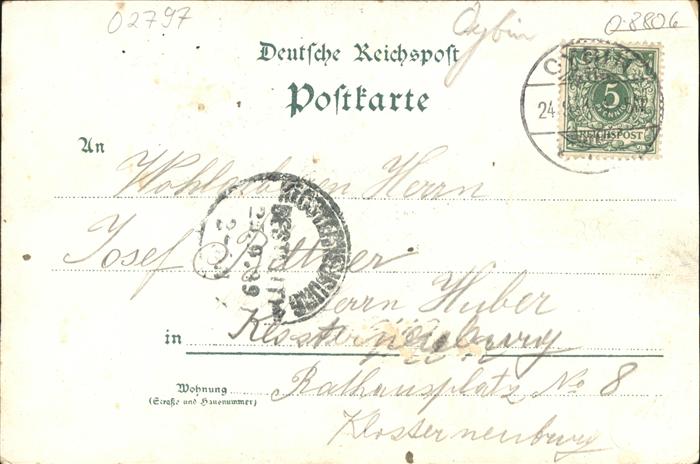 02797
Oybin
O-8806
Deutsche Reichspost
Postkarte
5
PFENNIG
REICHSPOST
24.
An
Wohlgeboren Herrn
Josef
Herrn Huber
in Klosterneuburg
KLOSTERNEUBURG
Wohnung
(Straße und Hausnummer)
Rathausplatz No 8
Klosterneuburg